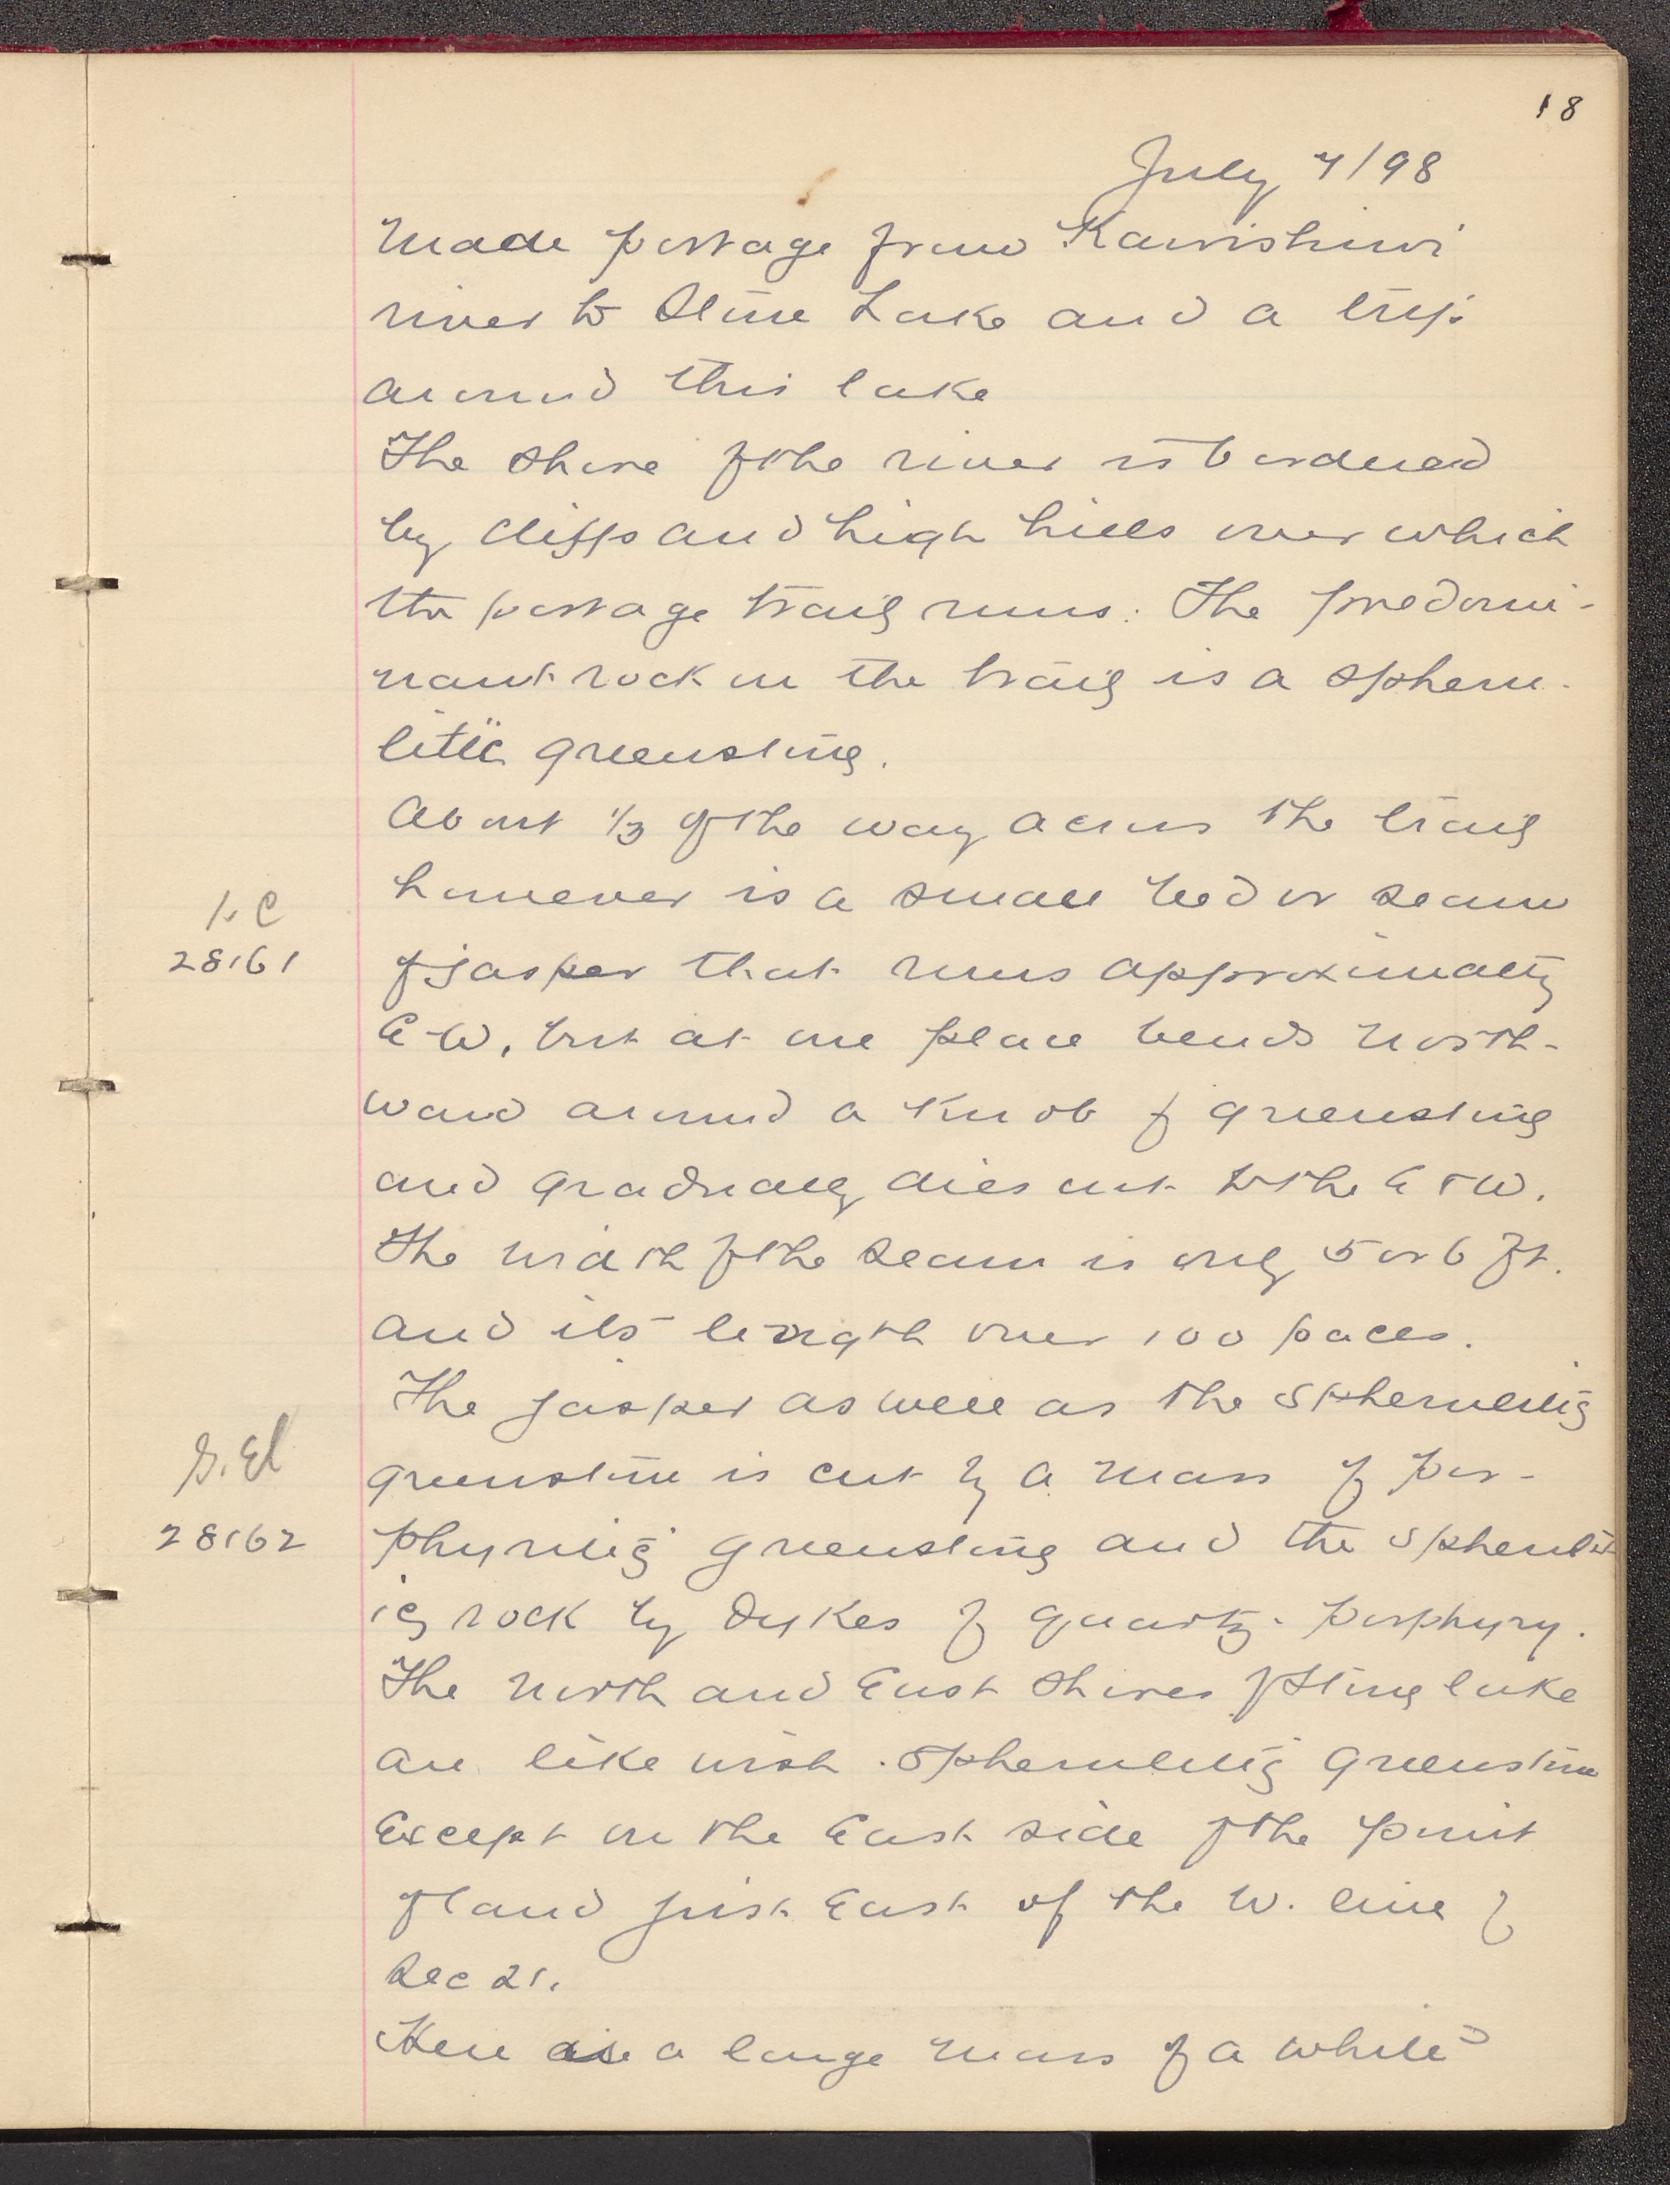 18
July 7/98
Made portage from Kawishiwi
river to Stone Lake and a trip
around this lake
The shore of the river is bordered
by cliffs and high hills over which
the portage trail runs. The predomi-
nant rock on the trail is a spheru-
litic greenstone.
About 1/3 of the way across the trail
however is a small bed or seam
28161
of jasper that runs approximately
E-W, but at one place bends north-
ward around a knob of greenstone
and gradually dies out to the E & W.
The width of the seam is only 5 or 6 ft.
and its length over 100 paces.
The jasper as well as the spherulitic
greenstone is cut by a mass of por-
28162
phyritic greenstone and the spherulit-
ic rock by dykes of quartz-porphyry.
The north and East shores of Stone lake
are likewise spherulitic greenstone
Except on the East side of the point
of land just East of the W. line of
Sec 21.
Here is a large mass of a white